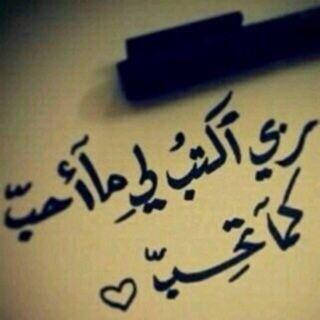 ربي ٱكتبُ لي مآأحبّ
كمآ تحِبّ ♡